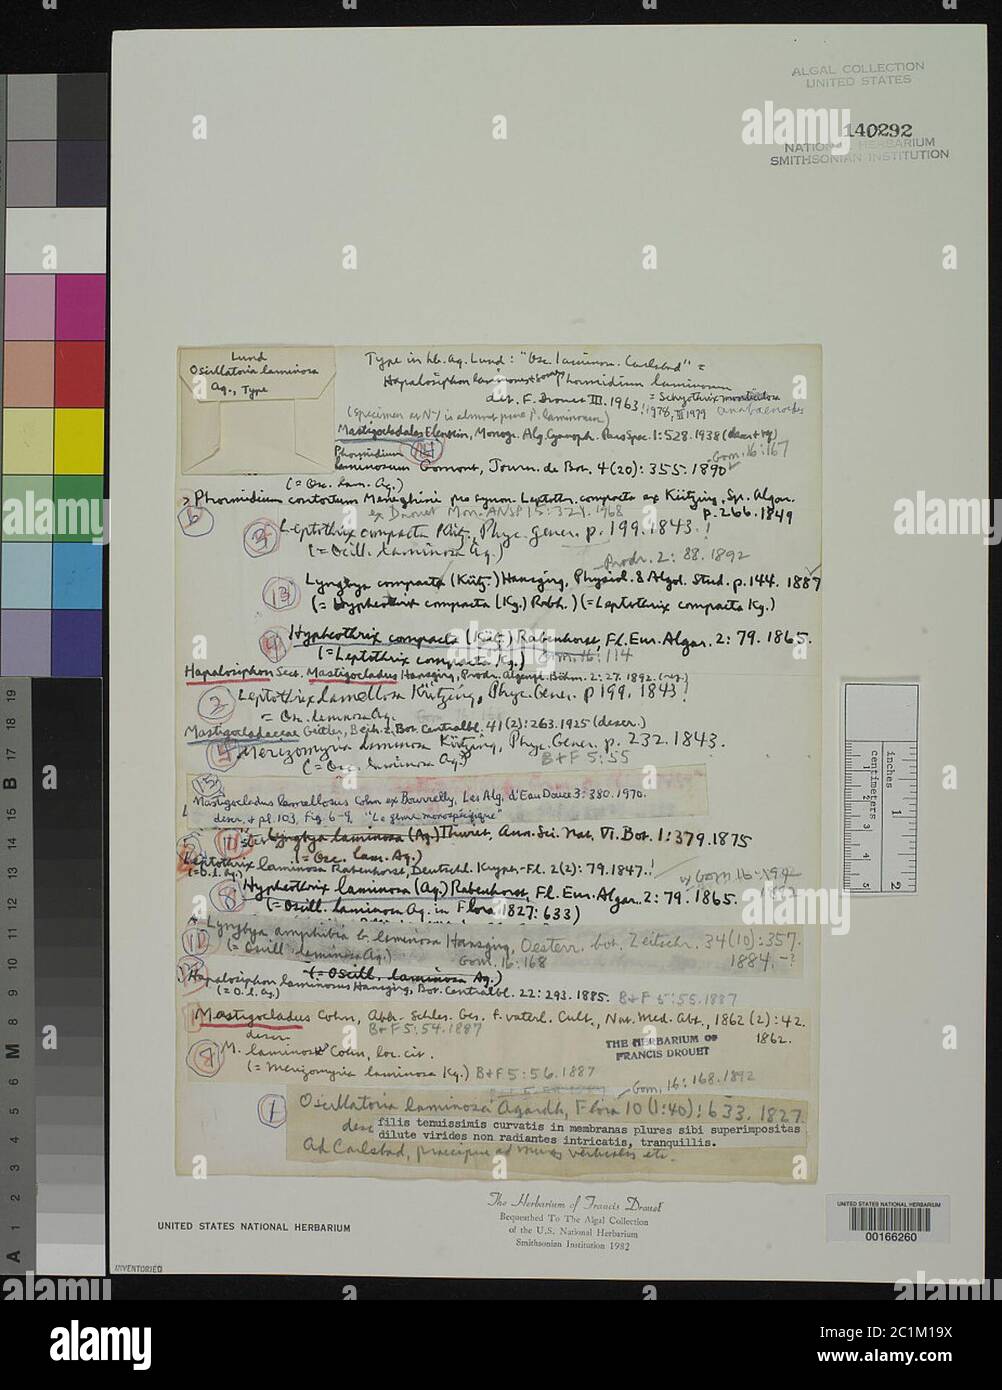 ALGAL COLLECTION
UNITED STATES
140292
NATIONAL HERBARIUM
SMITHSONIAN INSTITUTION
Lund
Oscillatoria laminosa
Ag., Type
Type in hb. Ag. Lund: "Osc. laminosa. Carlsbad" =
Hapalosiphon laminosus + Phormidium laminosum
det. F. Drouet III.1963; 1978, III 1979
= Schizothrix
(specimen in NY is almost pure P. laminosum)
Mastigocladales Elenkin, Monogr. Alg. Cyanoph. Pars Spec. 1:528.1938 (descr + eg)
Gom. 16:167
14
Phormidium
laminosum Gomont, Journ. de Bot. 4(20): 355. 1890
(= Osc. lam. Ag.)
> Phormidium contortum Meneghini pro synon. Leptothr. compacta ex Kützing, Sp. Algar.
p. 266. 1849
ex Drouet Mon. ANSP 15: 324. 1968
6
3
Leptothrix compacta Kütz. Phyc. gener. p. 199. 1843. !
(= Oscill. laminosa Ag.)
Prodr. 2: 88. 1892
13
Lyngbya compacta (Kütz.) Hansgirg, Physiol. & Algol. Stud. p. 144. 1887
(= Hypheothrix compacta (Kg.) Rabh.) (= Leptothrix compacta Kg.)
Hypheothrix compacta (Kütz.) Rabenhorst, Fl. Eur. Algar. 2: 79. 1865.
(= Leptothrix compacta Kg.) Gom. 16: 114
Hapalosiphon Sect. Mastigocladus Hansgirg, Prodr. Algenfl. Böhm. 2: 27. 1892.
2
Leptothrix lamellosa Kützing, Phyc. Gener. p 199. 1843!
= Osc. laminosa Ag.
Mastigocladaceae Geitler, Beih. z. Bot. Centralbl. 41(2): 263. 1925 (descr.)
4
Merizomyria laminosa Kützing, Phyc. Gener. p. 232. 1843.
(= Osc. laminosa Ag.)
B+F 5:55
15
Mastigocladus Ramellosus Cohn ex Bourrelly, Les Alg. d'Eau Douce 3: 380. 1970.
descr. + pl. 103, fig. 6-9, "Le genre monospécifique"
11
Lyngbya laminosa (Ag.) Thuret, Ann. Sci. Nat. VI. Bot. 1: 379. 1875
(= Osc. lam. Ag.)
Leptothrix laminosa Rabenhorst, Deutschl. Kryper-Fl. 2(2): 79. 1847.!
(= O. l. Ag.)
8
Hypheothrix laminosa (Ag.) Rabenhorst, Fl. Eur. Algar. 2: 79. 1865.
(= Oscill. laminosa Ag. in Flora 1827: 633)
Lyngbya amphibia b. laminosa Hansgirg, Oesterr. bot. Zeitschr. 34(10): 357.
1884. -?
(= Oscill laminosa Ag.)
Gom. 16: 168
(= Oscill. laminosa Ag.)
Hapalosiphon laminosus Hansgirg, Bot. Centralbl. 22: 293. 1885. B+F 5: 55. 1887
(= O. l. Ag.)
Mastigocladus Cohn, Abh. Schles. Ges. f. vaterl. Cult., Nat. Med. Abt., 1862 (2): 42.
1862.
descr. B+F 5: 54. 1887
THE HERBARIUM OF
FRANCIS DROUET
8
M. laminosus Cohn, loc. cit.
(= Merizomyria laminosa Kg.) B+F 5: 56. 1887
Gom. 16: 168. 1892
1
Oscillatoria laminosa Agardh, Flora 10 (1:40): 633. 1827.
desc
filis tenuissimis curvatis in membranas plures sibi superimpositas
dilute virides non radiantes intricatis, tranquillis.
Ad Carlsbad, praecipue ad muros verticales etc.
inches
centimeters
1
2
1
2
3
4
5
19
18
17
16
15
B
14
13
12
11
10
9
8
M
7
6
5
4
3
2
1
A
UNITED STATES NATIONAL HERBARIUM
The Herbarium of Francis Drouet
Bequeathed To The Algal Collection
of the U.S. National Herbarium
Smithsonian Institution 1982
UNITED STATES NATIONAL HERBARIUM
00166260
INVENTORIED
a
alamy
alamy
Image ID: 2C1M19X
www.alamy.com